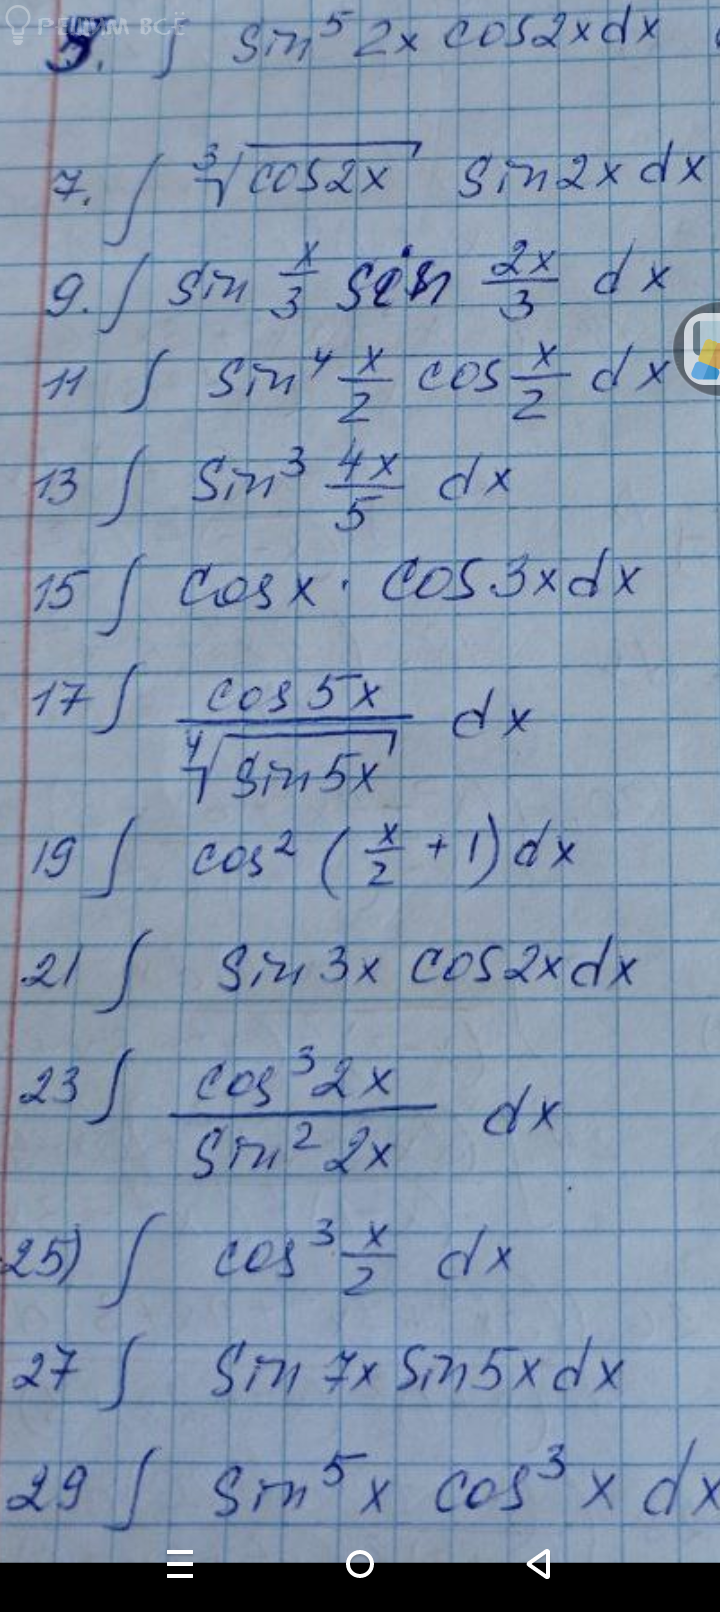 РЕШИМ ВСЁ
5. ∫ sin⁵ 2x cos2x dx
7. ∫ ∛(cos2x) sin2x dx
9. ∫ sin x/3 sin 2x/3 dx
11 ∫ sin⁴ x/2 cos x/2 dx
13 ∫ sin³ 4x/5 dx
15 ∫ cosx · cos3x dx
17 ∫ cos5x / ∜(sin5x) dx
19 ∫ cos² (x/2 + 1) dx
21 ∫ sin3x cos2x dx
23 ∫ cos³2x / sin²2x dx
25) ∫ cos³ x/2 dx
27 ∫ sin7x sin5x dx
29 ∫ sin⁵x cos³x dx